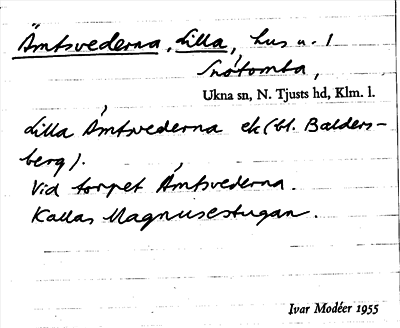 Åmtsvederna, Lilla, hus u. l
Snötomta,
Ukna sn, N. Tjusts hd, Klm. l.
Lilla Åmtsvederna ek (bl. Balders-
berg).
Vid torpet Åmtsvederna.
Kallas Magnusestugan.
Ivar Modéer 1955